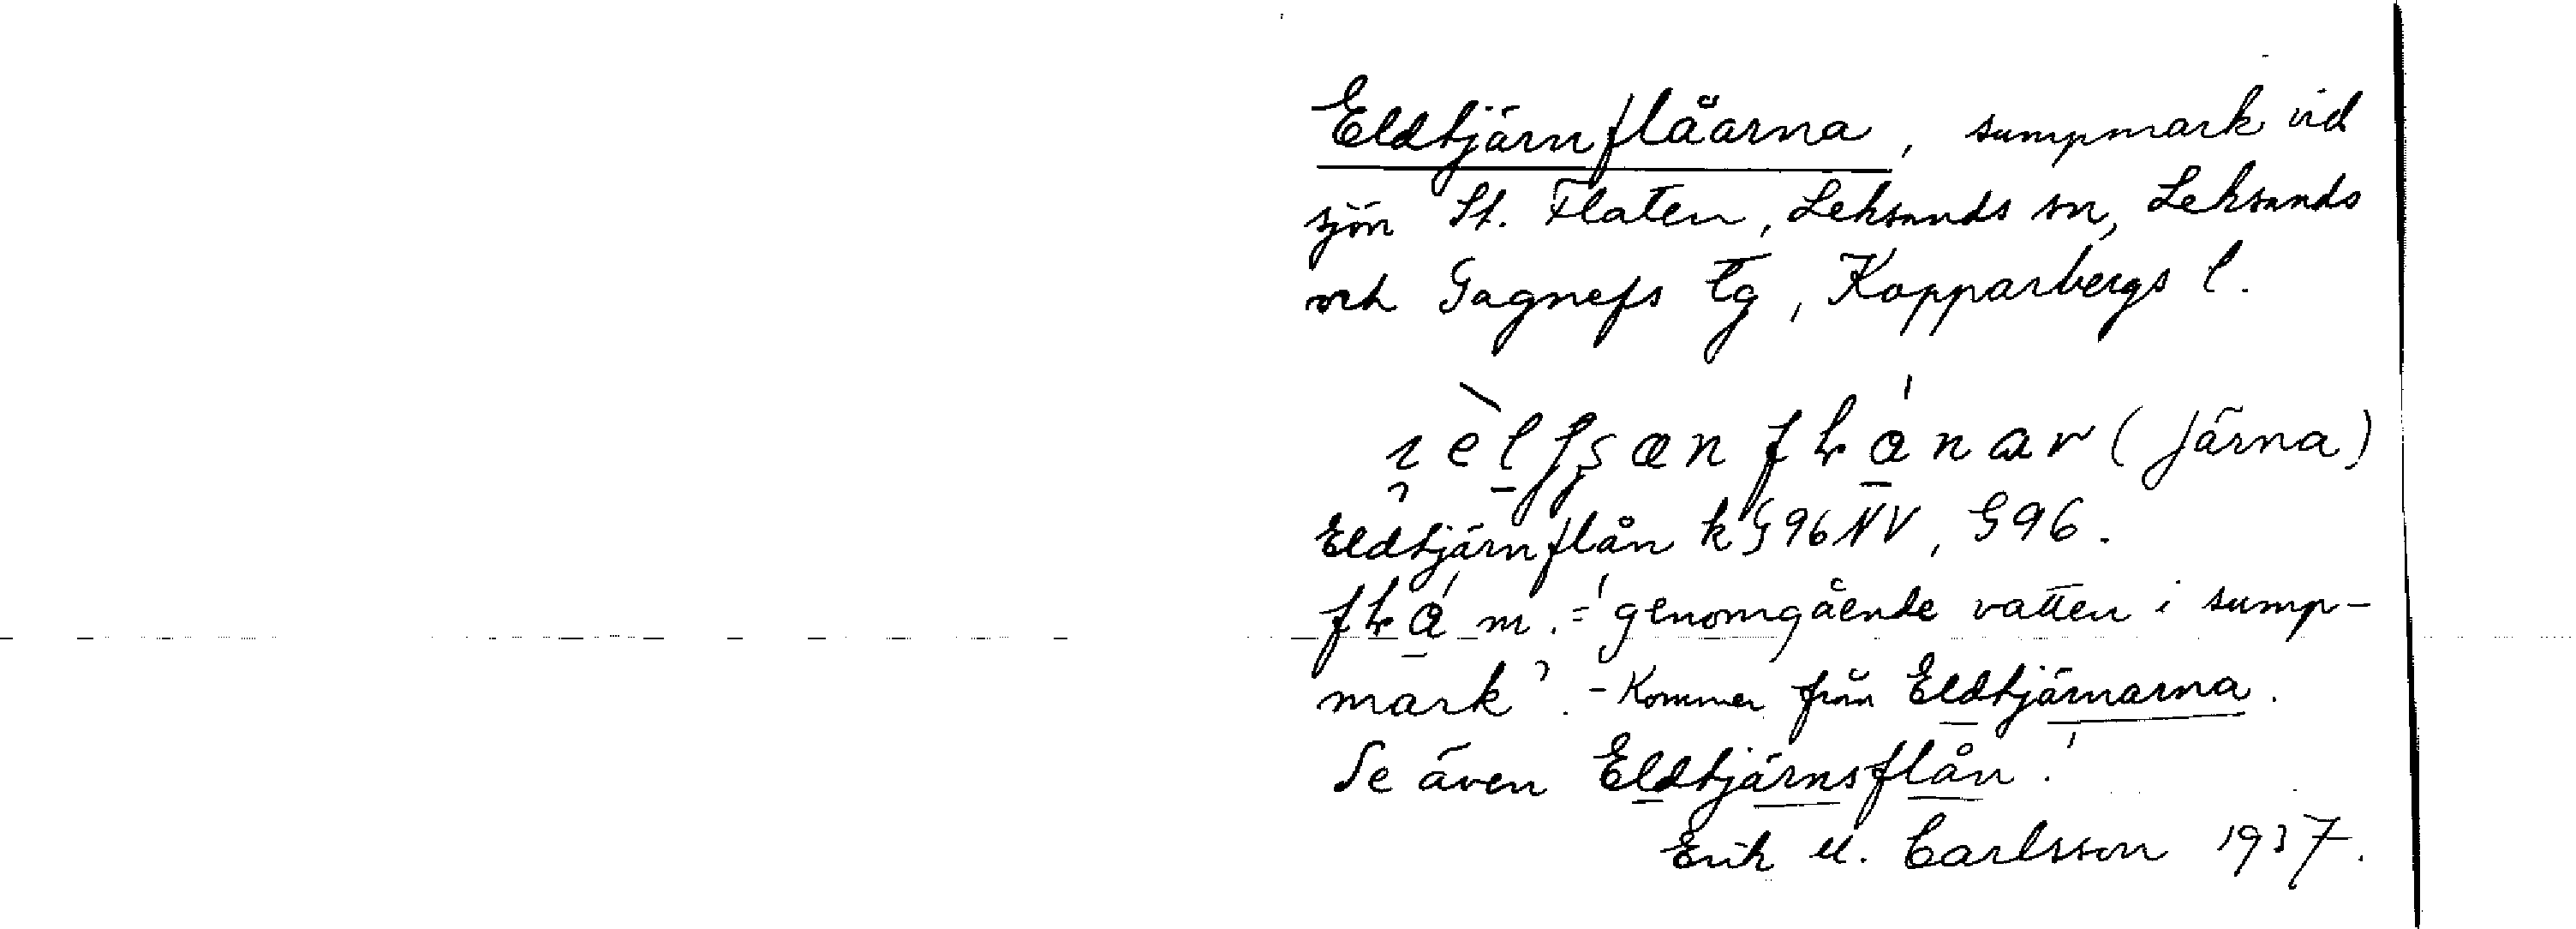 Eldtjärnflåarna, sumpmark vid
sjön St. Flaten, Leksands sn, Leksands
och Gagnefs tg, Kopparbergs l.
(Järna)
Eldtjärnflån k G96NV, G96.
m. = 'genomgående vatten i sump-
mark'. - Kommer från Eldtjärnarna.
Se även Eldtjärnsflån!
Erik M. Carlsson 1937.